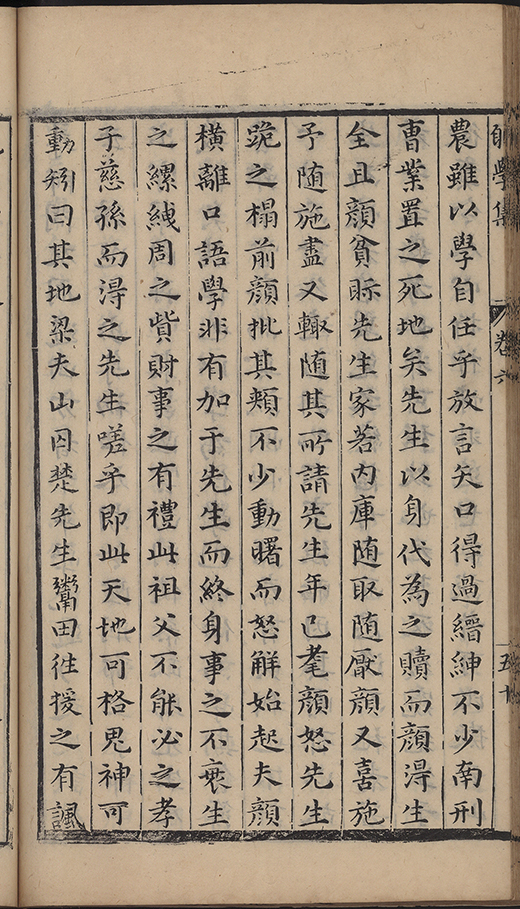 學集 卷六 五十
農雖以學自任乎放言矢口得過縉紳不少南刑
曹業置之死地矣先生以身代為之贖而顏得生
全且顏貧眎先生家若內庫随取随厭顏又喜施
予随施盡又輙随其所請先生年已耄顏怒先生
跪之榻前顏批其頰不少動曙而怒解始起夫顏
橫離口語學非有加于先生而終身事之不衰生
之縲絏周之貲財事之有禮此祖父不能必之孝
子慈孫而得之先生嗟乎即此天地可格鬼神可
動矧曰其地梁夫山囚楚先生鬻田徃援之有諷